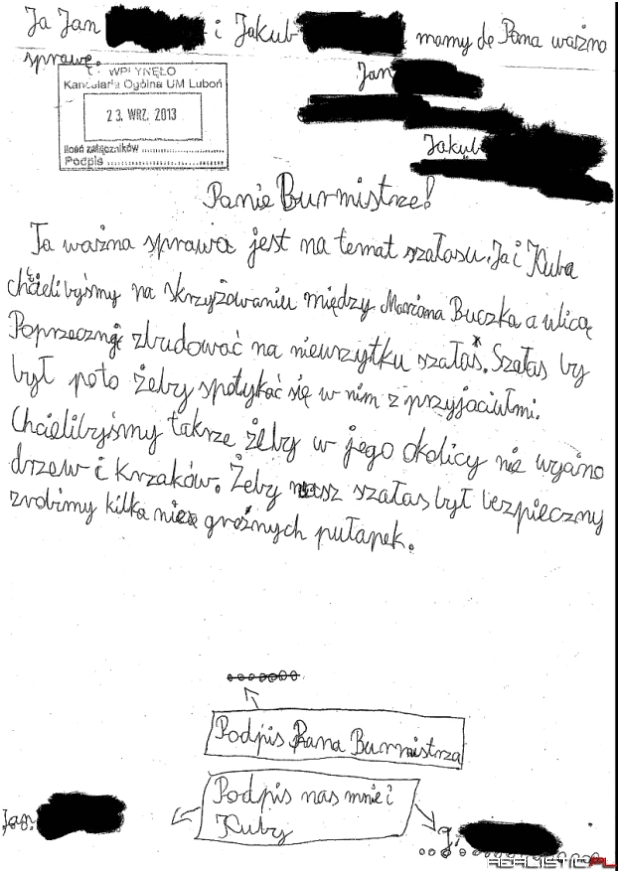 Ja Jan i Jakub mamy do Pana ważno
sprawę.
WPŁYNĘŁO
Kancelaria Ogólna UM Luboń
23. WRZ. 2013
Ilość załączników
Podpis
Jan
Jakub
Panie Burmistrze!
Ta ważna sprawa jest na temat szałasu. Ja i Kuba
chcielibyśmy na skrzyżowaniu między Mariana Buczka a ulicą
Poprzeczną zbudować na nieurzytku szałas. Szałas by
był poto żeby spotykać się w nim z przyjaciułmi.
Chcielibyśmy takrze żeby w jego okolicy nie wycino
drzew i krzaków. Żeby nasz szałas był bezpieczny
zrobimy kilka nie groźnych pułapek.
Podpis Pana Burmistrza
Podpis nas mnie i
Kuby
Jan
REALISTIC.PL